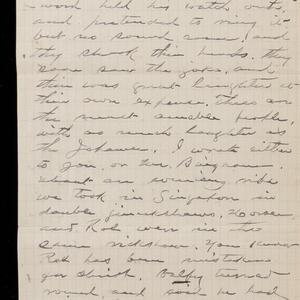 word held his watch out,
and pretended to ring it
but no sound came, and
they shook their heads. They
soon saw the joke, and
there was great laughter at
their own expense. These are
the most amiable people,
with as much laughter as
the Japanese. I wrote either
to you, or Mr.
about an evening ride
we took in Singapore in
double jinrickshaws,
and Rob were in the
same rickshaw. You know
Rob has been mistaken
for British. turned
round, and said he had